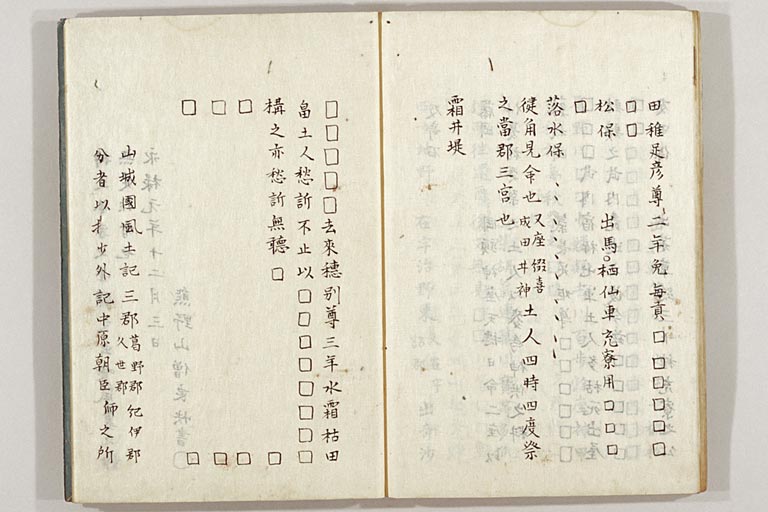 田稚足彦尊二年免毎貢□□□□□□
□□
松保 出馬。栖仙車充寮用□□□
□
落水保、、、、、、、、、、
健角見命也又座綴喜
成田井神土人四時四度祭
之當郡三宮也
霜井堤
□□□□□□去來穗別尊三年水霜枯田
畠土人愁訴不止以□□□□□□□□
構之亦愁訴無聽□ □
□ □
□ □
□ □
山城國風土記三郡葛野郡紀伊郡
久世郡
分者以 外記中原朝臣師之所